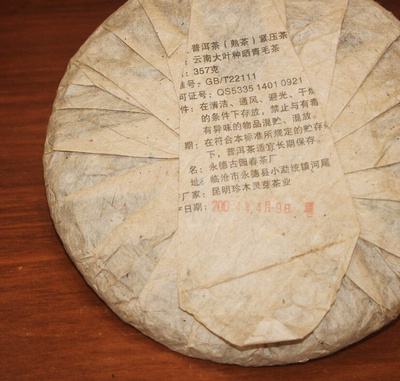 普洱茶(熟茶)紧压茶
: 云南大叶种晒青毛茶
: 357克
号: GB/T22111
可证号: QS5335 1401 0921
件: 在清洁、通风、避光、干燥
的条件下存放，禁止与有毒
有异味的物品混贮、混放。
期: 在符合本标准所规定的贮存
下，普洱茶适宜长期保存。
名: 永德古园春茶厂
址: 临沧市永德县小勐统镇河尾
厂家: 昆明珍木灵芽茶业
产日期: 200 4月9日